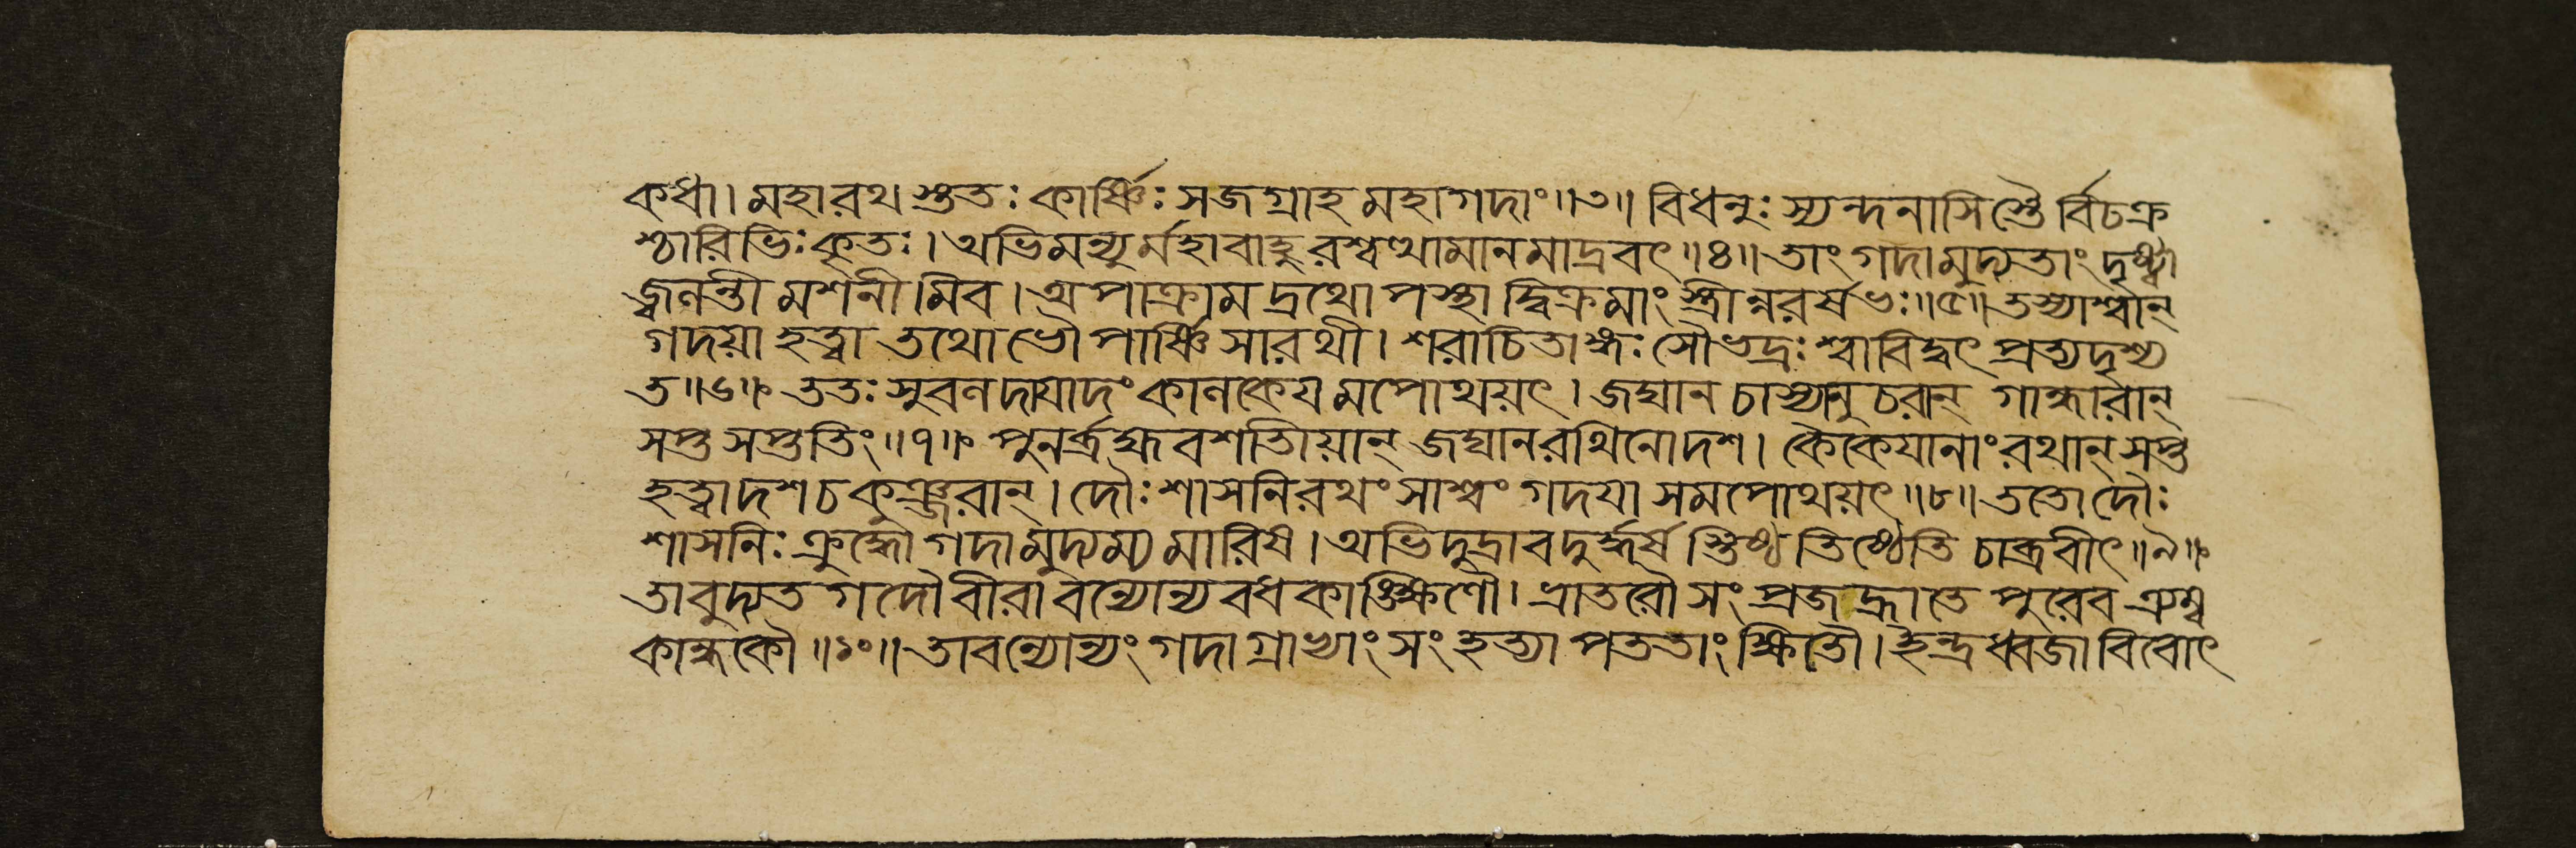 কধা। মহারথ স্তুতঃ কার্ষ্ণিঃ সজগ্রাহ মহাগদাং॥৩॥ বিধনুঃ স্যন্দনাসিস্তৈ র্বিচক্র
শ্চারিভিঃ কৃতঃ। অভিমন্যুর্মহাবাহুরশ্বত্থামানমাদ্রবৎ॥৪॥ তাং গদামুদ্যতাং দৃষ্ট্বা
জ্বলন্তীমশনীমিব। অপাক্রামদ্রথোপস্থাদ্বিক্রমাং স্ত্রীন্নরর্ষভঃ॥৫॥ তস্যাশ্বান্
গদয়া হত্বা তথোভৌ পার্ষ্ণিসারথী। শরাচিতাঙ্গঃ সৌভদ্রঃ শ্বাবিদ্বৎ প্রত্যদৃশ্য
ত॥৬॥ ততঃ সুবলদায়াদং কালকেয়মপোথয়ৎ। জঘান চাস্যানুচরান্ গান্ধারান্
সপ্তসপ্ততিং॥৭॥ পুনর্ব্রহ্মবশাতিয়ান্ জঘান রথিনো দশ। কৈকেয়ানাং রথান্ সপ্ত
হত্বা দশ চ কুঞ্জরান্। দৌঃশাসনিরথং সাশ্বং গদয়া সমপোথয়ৎ॥৮॥ ততো দৌঃ
শাসনিঃ ক্রুদ্ধো গদামুদ্যম্য মারিষ। অভিদুদ্রাব দুর্দ্ধর্ষ স্তিষ্ঠ তিষ্ঠেতি চাব্রবীৎ॥৯॥
তাবুদ্যতগদৌ বীরাবন্যোন্যবধকাঙ্ক্ষিণৌ। ভ্রাতরৌ সংপ্রজহ্রাতে পুরেব ত্র্যম্ব
কান্ধকৌ॥১০॥ তাবন্যোন্যং গদাগ্রাভ্যাং সংহত্য পততাং ক্ষিতৌ। ইন্দ্রধ্বজাবিবোৎ